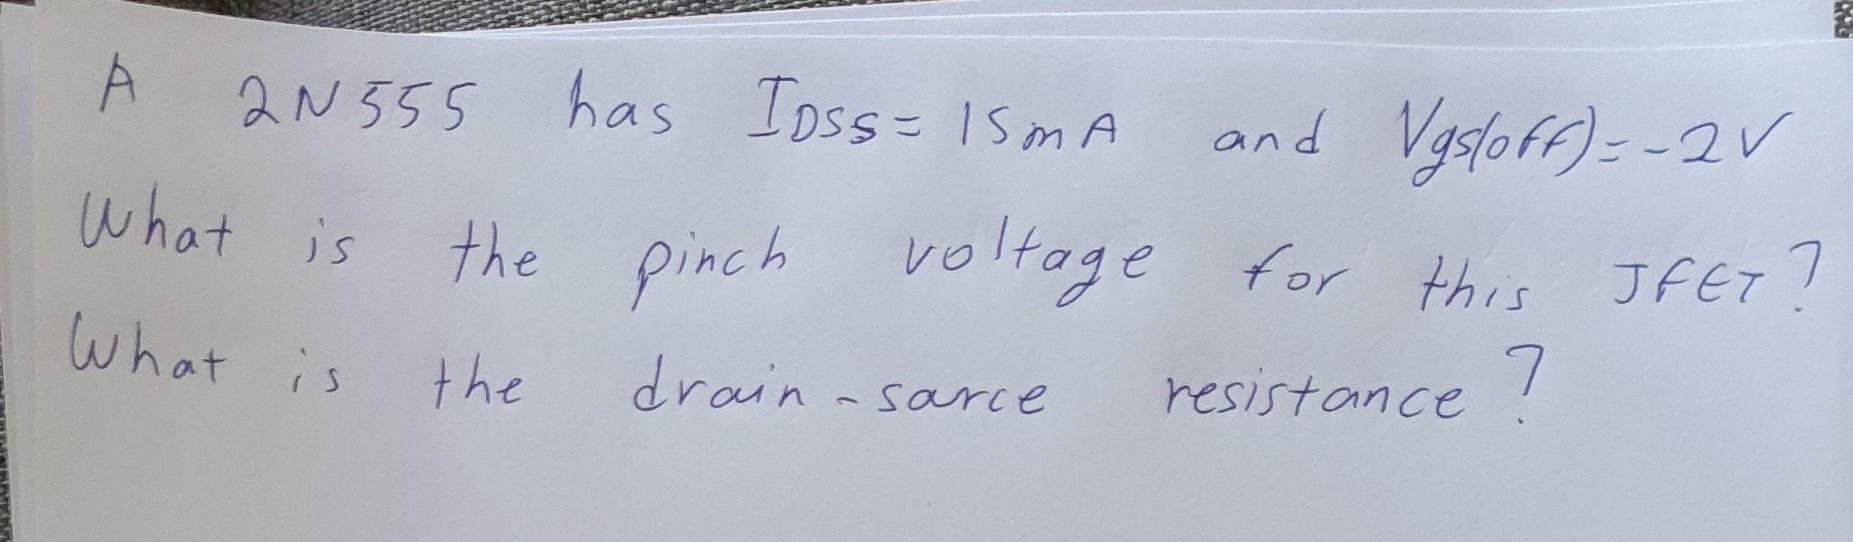 A 2N555 has IDSS = 15mA and Vgs(off) = -2V
What is the pinch voltage for this JFET?
What is the drain-sarce resistance?